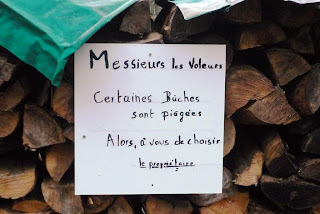 Messieurs les Voleurs
Certaines Bûches
sont piégées
Alors, à vous de choisir
le propriétaire